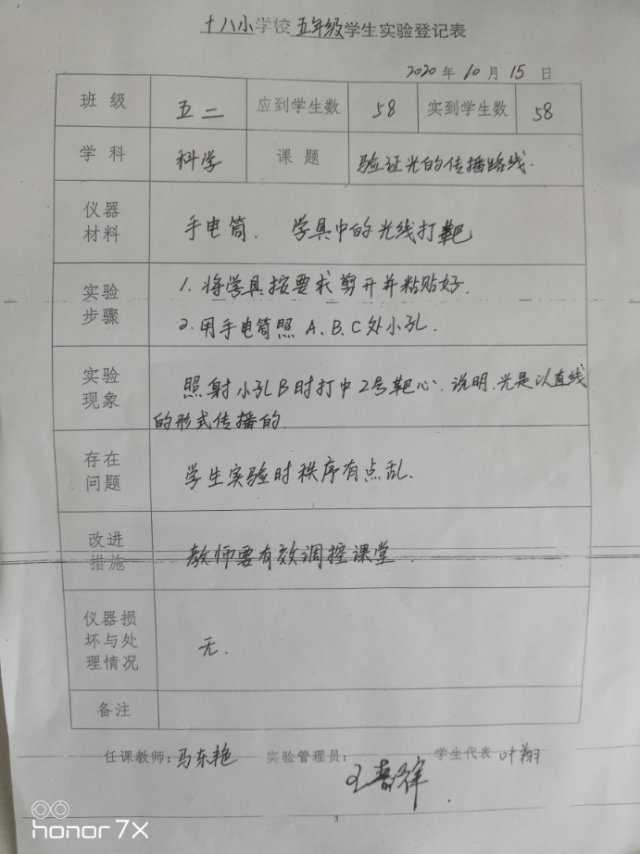 十八小学校五年级学生实验登记表
2020年10月15日
班级 五二 应到学生数 58 实到学生数 58
学科 科学 课题 验证光的传播路线.
仪器
材料
手电筒. 学具中的光线打靶
实验
步骤
1. 将学具按要求剪开并粘贴好.
2. 用手电筒照 A、B、C处小孔.
实验
现象
照射小孔B时打中2号靶心. 说明,光是以直线
的形式传播的.
存在
问题
学生实验时秩序有点乱.
改进
措施
教师要有效调控课堂.
仪器损
坏与处
理情况
无.
备注
任课教师:马东艳 实验管理员: 学生代表 叶翔
3
honor 7X